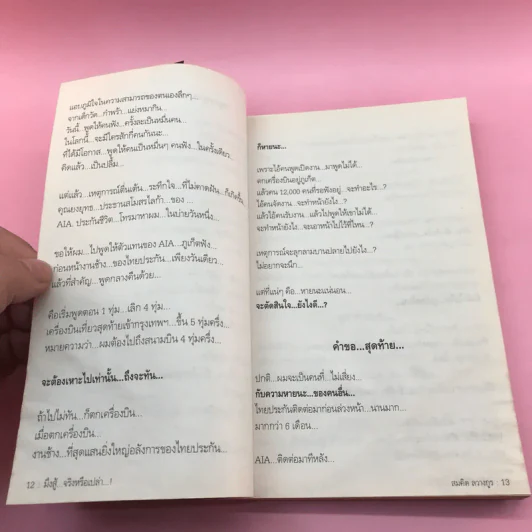 แอบภูมิใจในความสามารถของตนเองลึกๆ...
จากเด็กวัด...กำพร้า...แย่งหมากิน...
วันนี้...พูดให้คนฟัง...ครั้งละเป็นหมื่นคน...
ในโลกนี้...จะมีใครสักกี่คนกันนะ...
ที่ได้มีโอกาส...พูดให้คนเป็นหมื่นๆ คนฟัง...ในครั้งเดียว...
คิดแล้ว...เป็นปลื้ม...
แต่แล้ว...เหตุการณ์ตื่นเต้น...ระทึกใจ...ที่ไม่คาดฝัน...ก็เกิดขึ้น
คุณยงยุทธ...ประธานสโมสรไลก้า...ของ...
AIA. ประกันชีวิต...โทรมาหาผม...ในบ่ายวันหนึ่ง...
ขอให้ผม...ไปพูดให้ตัวแทนของ AIA...ภูเก็ตฟัง...
ก่อนหน้างานช้าง...ของไทยประกัน...เพียงวันเดียว...
แล้วที่สำคัญ...พูดกลางคืนด้วย...
คือเริ่มพูดตอน 1 ทุ่ม...เลิก 4 ทุ่ม...
เครื่องบินเที่ยวสุดท้ายเข้ากรุงเทพฯ...ขึ้น 5 ทุ่มครึ่ง...
หมายความว่า...ผมต้องไปถึงสนามบิน 4 ทุ่มครึ่ง...
จะต้องเหาะไปเท่านั้น...ถึงจะทัน...
ถ้าไปไม่ทัน...ก็ตกเครื่องบิน...
เมื่อตกเครื่องบิน...
งานช้าง...ที่สุดแสนยิ่งใหญ่อลังการของไทยประกัน...
12 : มึงสู้... จริงหรือเปล่า...!
ก็หายนะ...
เพราะไอ้คนพูดเปิดงาน...มาพูดไม่ได้...
ตกเครื่องบินอยู่ภูเก็ต...
แล้วคน 12,000 คนที่รอฟังอยู่...จะทำอะไร...?
ไอ้คนจัดงาน...จะทำหน้ายังไง...?
แล้วไอ้คนรับงาน...แล้วไปพูดให้เขาไม่ได้...
จะทำหน้ายังไง...จะเอาหน้าไปไว้ที่ไหน...?
เหตุการณ์จะลุกลามบานปลายไปยังไง...?
ไม่อยากจะนึก...
แต่ที่แน่ๆ คือ...หายนะแน่นอน...
จะตัดสินใจ...ยังไงดี...?
คำขอ...สุดท้าย...
ปกติ...ผมจะเป็นคนที่...ไม่เสี่ยง...
กับความหายนะ...ของคนอื่น...
ไทยประกันติดต่อมาก่อนล่วงหน้า...นานมาก...
มากกว่า 6 เดือน...
AIA...ติดต่อมาทีหลัง...
สมคิด ลวางกูร : 13